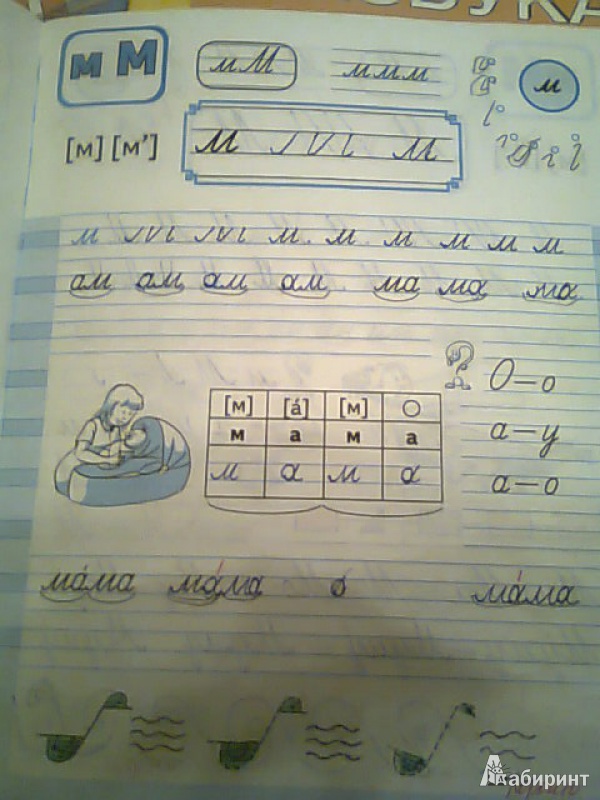 АЗБУКА
м М
м М
м м м
м
[м] [м’]
м м
м м м м м м м
ам ам ам ам ма ма ма
О – о
[м] [а́] [м]
м а м а
а – у
м а м а
а – о
ма́ма ма́ма ма́ма
Лабиринт